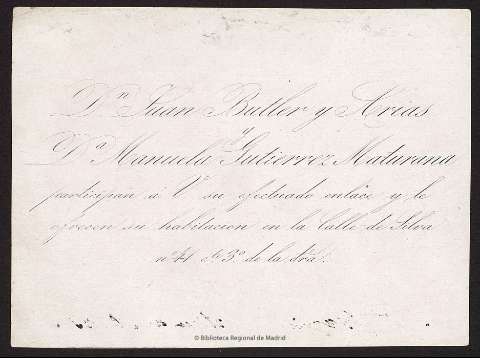 Dn. Juan Butler y Arias
y
Da. Manuela Gutierrez Maturana
participan á V. su efectuado enlace y le
ofrecen su habitacion en la Calle de Silva
nº 41 cto 3º de la dra.
© Biblioteca Regional de Madrid